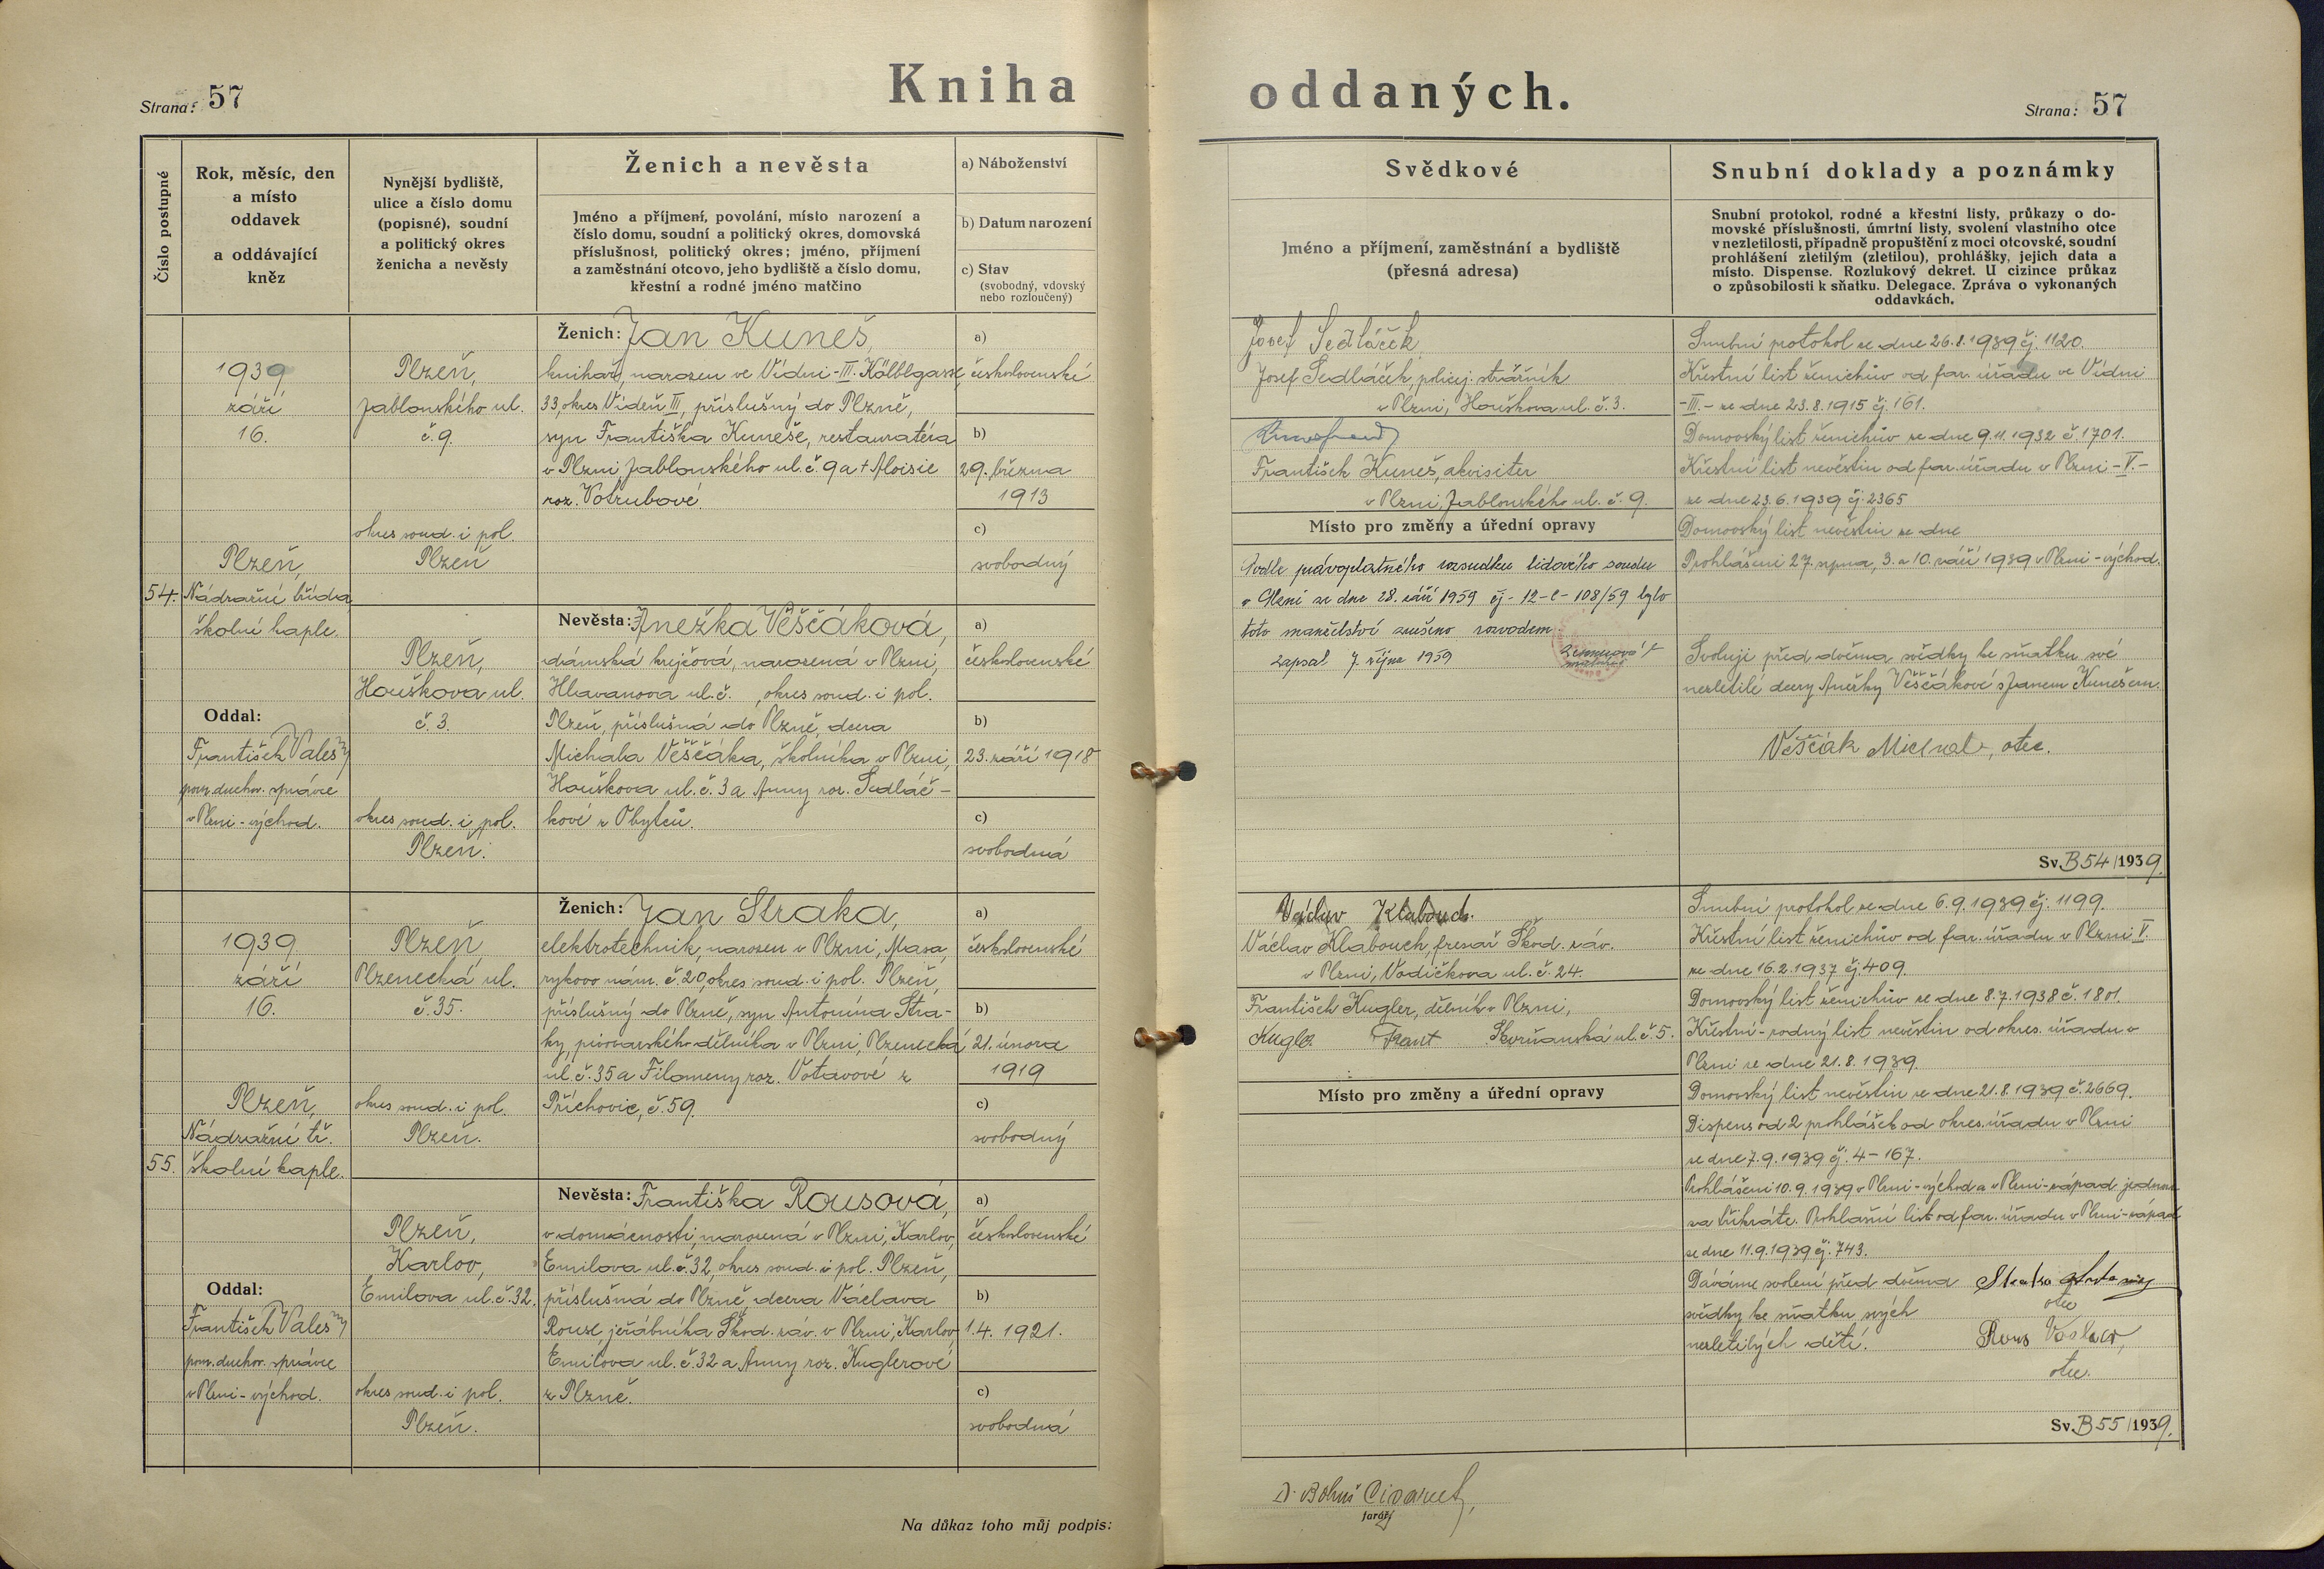 Strana: 57
Kniha oddaných.
Strana: 57
Číslo postupné
Rok, měsíc, den
a místo
oddavek
a oddávající
kněz
Nynější bydliště,
ulice a číslo domu
(popisné), soudní
a politický okres
ženicha a nevěsty
Ženich a nevěsta
Jméno a příjmení, povolání, místo narození a
číslo domu, soudní a politický okres, domovská
příslušnost, politický okres; jméno, příjmení
a zaměstnání otcovo, jeho bydliště a číslo domu,
křestní a rodné jméno matčino
a) Náboženství
b) Datum narození
c) Stav
(svobodný, vdovský
nebo rozloučený)
Svědkové
Jméno a příjmení, zaměstnání a bydliště
(přesná adresa)
Snubní doklady a poznámky
Snubní protokol, rodné a křestní listy, průkazy o do-
movské příslušnosti, úmrtní listy, svolení vlastního otce
v nezletilosti, případně propuštění z moci otcovské, soudní
prohlášení zletilým (zletilou), prohlášky, jejich data a
místo. Dispense. Rozlukový dekret. U cizince průkaz
o způsobilosti k sňatku. Delegace. Zpráva o vykonaných
oddavkách.
54.
1939
září
16.
Plzeň,
Nádražní třída
školní kaple.
Oddal:
František Valeš
pom. duchov. správce
v Plzni-východ.
Plzeň,
Jablonského ul.
č. 9.
okres soud. i pol.
Plzeň
Plzeň,
Houškova ul.
č. 3.
okres soud. i pol.
Plzeň.
Ženich: Jan Kuneš,
knihař, narozen ve Vídni-III. Kölblgasse
33, okres Vídeň III, příslušný do Plzně,
syn Františka Kuneše, restauratéra
v Plzni Jablonského ul. č. 9 a † Aloisie
roz. Votrubové.
Nevěsta: Anežka Věščáková,
dámská krejčová, narozená v Plzni,
Hlavanova ul. č. , okres soud. i pol.
Plzeň, příslušná do Plzně, dcera
Michala Věščáka, školníka v Plzni,
Houškova ul. č. 3 a Anny roz. Sedláč-
kové z Obytců.
a)
československé
b)
29. března
1913
c)
svobodný
a)
československé
b)
23. září 1918
c)
svobodná
Josef Sedláček
Josef Sedláček, policej. strážník
v Plzni, Houškova ul. č. 3.
František Kuneš, akvisitér
v Plzni, Jablonského ul. č. 9.
Místo pro změny a úřední opravy
Podle právoplatného rozsudku lidového soudu
v Plzni ze dne 28. září 1959 čj - 12-C-108/59 bylo
toto manželství zrušeno rozvodem.
Zapsal 7. října 1959
Snubní protokol ze dne 26.8.1939 čj. 1120.
Křestní list ženichův od far. úřadu ve Vídni
-III.- ze dne 23.8.1915 čj. 161.
Domovský list ženichův ze dne 9.11.1932 č. 1701.
Křestní list nevěstin od far. úřadu v Plzni-V.-
ze dne 23.6.1939 čj. 2365
Domovský list nevěstin ze dne
Prohlášeni 27. srpna, 3. a 10. září 1939 v Plzni-východ.
Svoluji před dvěma svědky ke sňatku své
nezletilé dcery Anežky Věščákové s Janem Kunešem.
Věščák Michal, otec.
Sv. B 54/1939.
55.
1939
září
16.
Plzeň,
Nádražní tř.
školní kaple.
Oddal:
František Valeš
pom. duchov. správce
v Plzni-východ.
Plzeň,
Plzenecká ul.
č. 35.
okres soud. i pol.
Plzeň.
Plzeň,
Karlov,
Emilova ul. č. 32.
okres soud. i pol.
Plzeň.
Ženich: Jan Straka,
elektrotechnik, narozen v Plzni, Masa,
rykovo nám. č. 20, okres soud. i pol. Plzeň,
příslušný do Plzně, syn Antonína Stra-
ky, pivovarského dělníka v Plzni, Plzenecká
ul. č. 35 a Filomeny roz. Votavové z
Příchovic, č. 59.
Nevěsta: Františka Rousová,
v domácnosti, narozená v Plzni, Karlov,
Emilova ul. č. 32, okres soud. i pol. Plzeň,
příslušná do Plzně, dcera Václava
Rouse, jeřábníka Škod. záv. v Plzni, Karlov
Emilova ul. č. 32 a Anny roz. Kuglerové
z Plzně.
a)
československé
b)
21. února
1919
c)
svobodný
a)
československé
b)
1.4. 1921.
c)
svobodná
Václav Klabouch.
Václav Klabouch, fresař Škod. záv.
v Plzni, Vodičkova ul. č. 24.
František Kugler, dělník v Plzni,
Kugler Frant Skvrňanská ul. č. 5.
Místo pro změny a úřední opravy
Snubní protokol ze dne 6.9.1939 čj. 1199.
Křestní list ženichův od far. úřadu v Plzni V.
ze dne 16.2.1937 čj. 409.
Domovský list ženichův ze dne 8.7.1938 č. 1801.
Křestní-rodný list nevěstin od okres. úřadu v
Plzni ze dne 21.8.1939.
Domovský list nevěstin ze dne 21.8.1939 č. 2669.
Dispens od 2 prohlášek od okres. úřadu v Plzni
ze dne 7.9.1939 čj. 4-167.
Prohlášeni 10.9.1939 v Plzni-východ a v Plzni-západ jednou
za třikráte. Prohlašní list od far. úřadu v Plzni-západ
ze dne 11.9.1939 čj. 743.
Dáváme svolení před dvěma Straka Antonín
svědky ke sňatku svých otec
nezletilých dětí. Rous Václav,
otec.
Sv. B 55/1939.
Na důkaz toho můj podpis:
farář